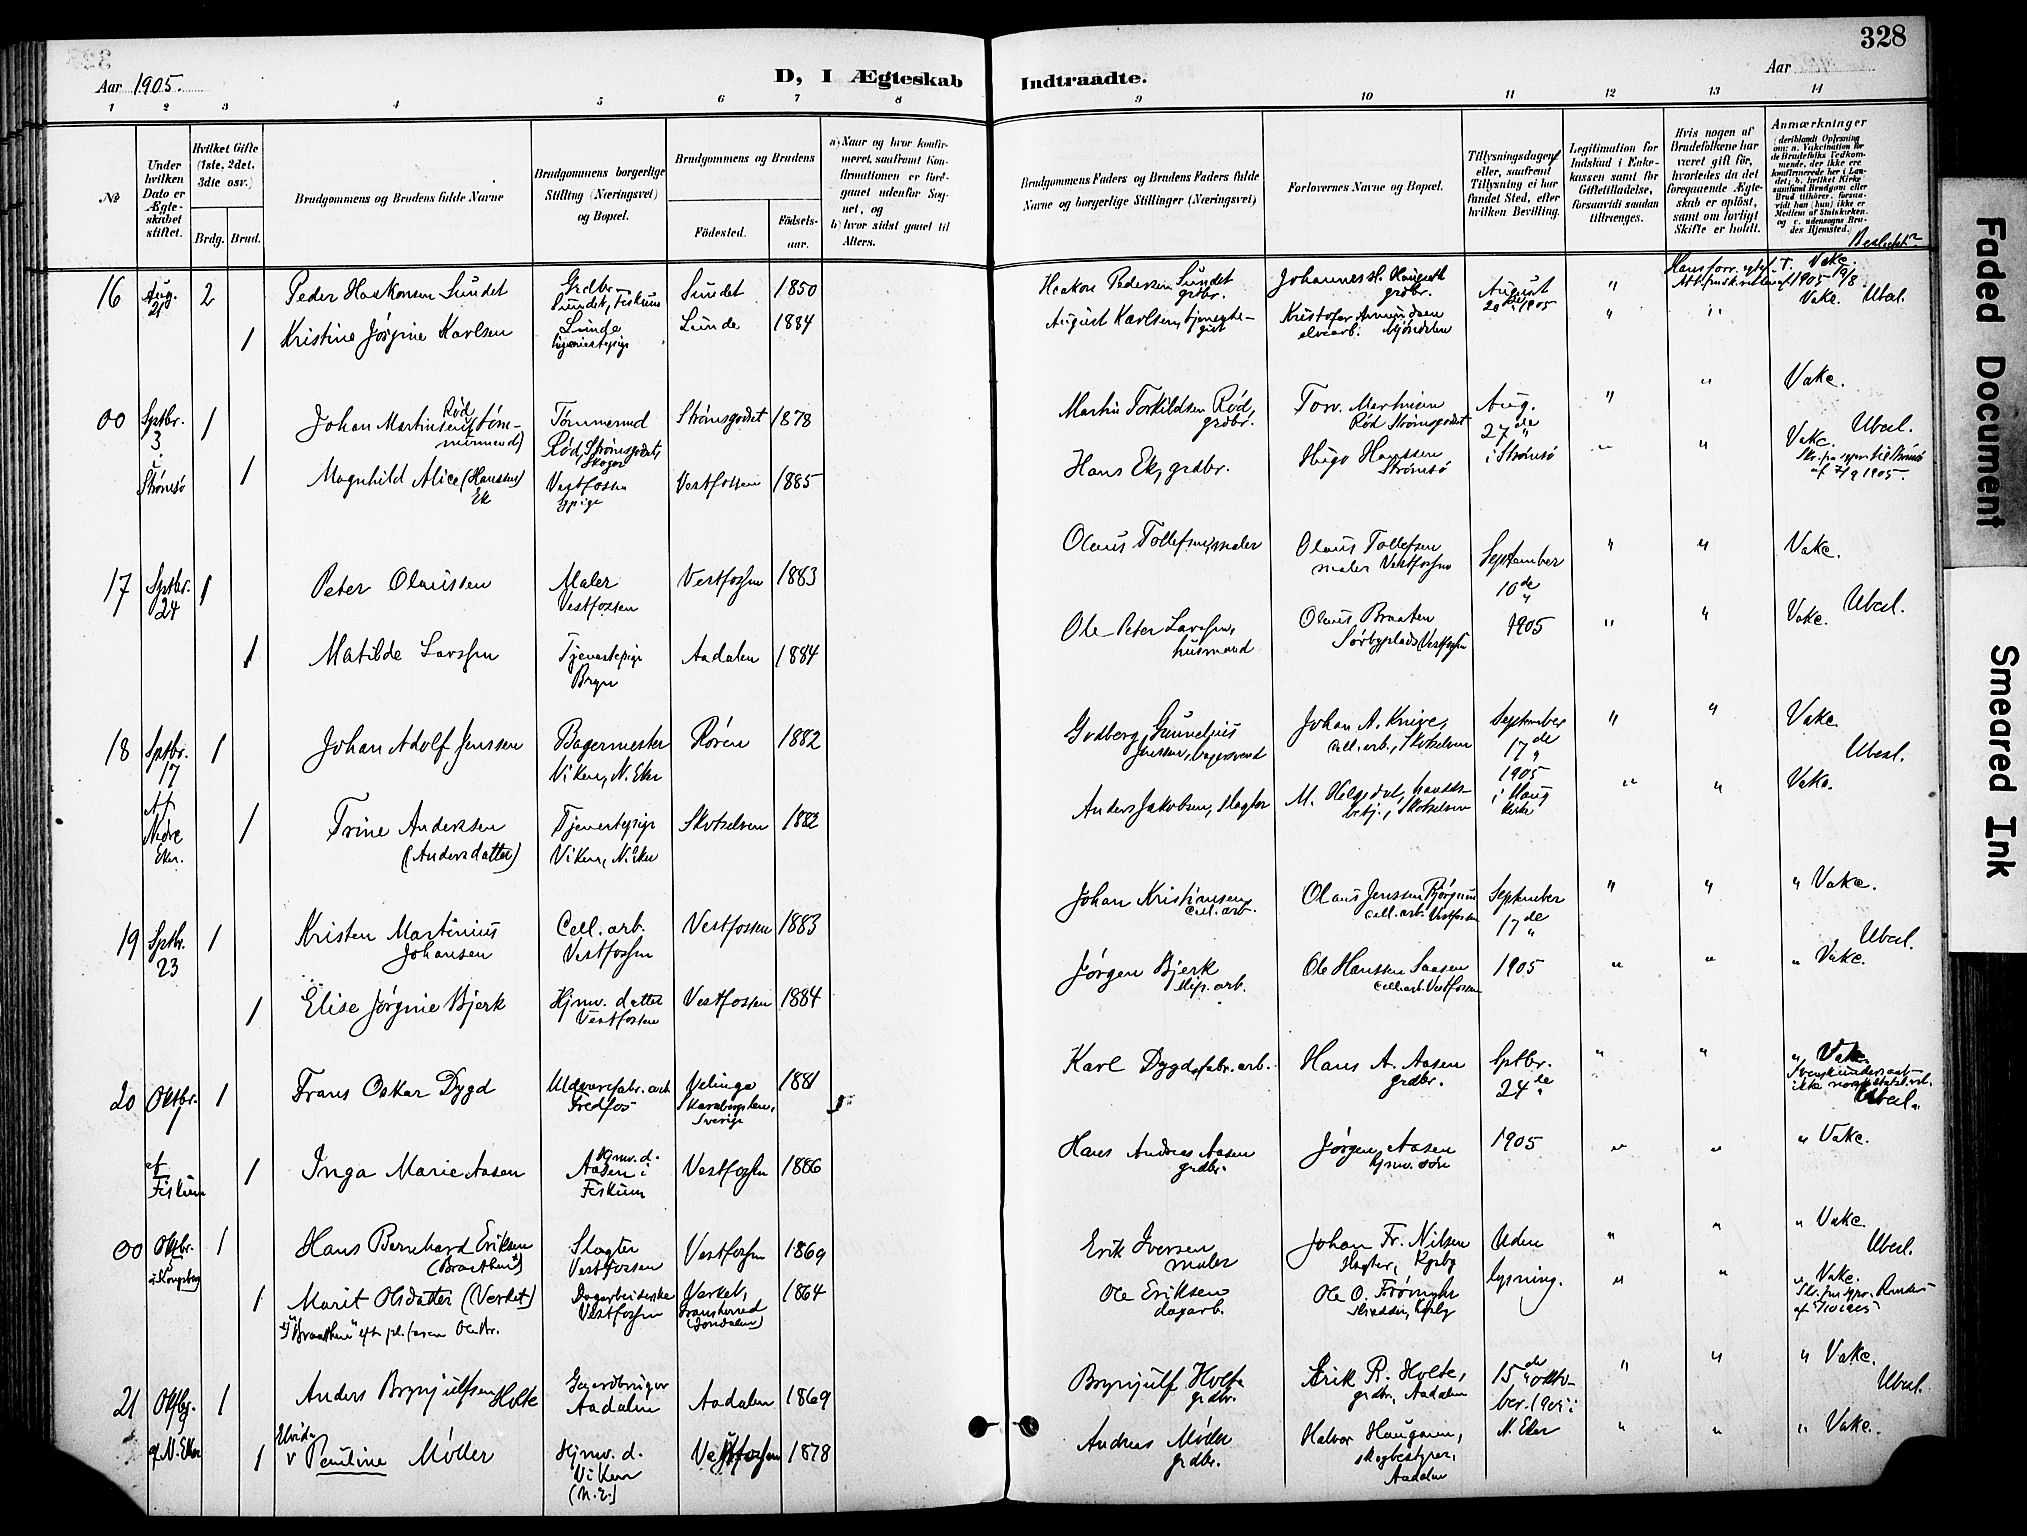 328
Aar 1905.
D, I Ægteskab Indtraadte.
Aar
1 2 3 4 5 6 7 8 9 10 11 12 13 14
No
Under hvilken Dato er Ægteskabet stiftet.
Hvilket Gifte (1ste, 2det, 3die osv.)
Brdg. Brud.
Brudgommens og Brudens fulde Navne
Brudgommens borgerlige Stilling (Næringsvei) og Bopæl.
Brudgommens og Brudens
Födested.
Födsels-aar.
a) Naar og hvor konfirmeret, saafremt Konfirmationen er foregaaet udenfor Sognet, og
b) hvor sidst gaaet til Alters.
Brudgommens Faders og Brudens Faders fulde Navne og borgerlige Stillinger (Næringsvei)
Forlovernes Navne og Bopæl.
Tillysningsdagene eller, saafremt Tillysning ei har fundet Sted, efter hvilken Bevilling.
Legitimation for Indskud i Enkekassen samt for Giftetilladelse, forsaavidt saadan tiltrænges.
Hvis nogen af Brudefolkene har været gift för, hvorledes da det foregaaende Ægteskab er oplöst, samt om lovligt Skifte er holdt.
Anmærkninger
16 Aug. 2 Peder Haakonsen Sundet Grdbr. Sundet, Fiskum Sundet 1850 Haakon Pedersen Sundet grdbr. Johannes H. grdbr. August 20de 1905 " Vake. Ubesl.
1 Kristine Jørgine Karlsen Lunde Lunde 1884 August Karlsen, Kristofer Mjøndalen " " Vake.
00 Sptbr. 3 i Strømsø 1 Johan Martinsen Rød (tømmermand) Tømmermd Rød, Strømsgodset, Skoger Strømsgodset 1878 Martin Torkildsen Rød, grdbr. Torv. Martinsen Rød Strømsgodset Aug. 27de i Strømsø " " Vake. Ubesl.
1 Magnhild Alice (Hanssen) Ek Vestfossen pige Vestfossen 1885 Hans Ek, grdbr. Hugo Hanssen Strømsø " " Vake.
17 Sptbr. 24 1 Peter Olaussen Maler Vestfossen Vestfossen 1883 Olaus Tollefsen, maler Olaus Tollefsen maler Vestfossen September 10de 1905 " " Vake. Ubesl.
1 Matilde Larssen Tjenestepige Bryn Aadalen 1884 Ole Peter Larssen, husmand Olaus Braaten Vestfossen " " Vake.
18 Sptbr. 17 Af Nedre Eker. 1 Johan Adolf Jenssen Bagermester Viken, N. Eker Røren 1882 Gudberg Gunnelius Jenssen, bagersvend Johan A. Knive, cell. arb., Skotselven September 17de 1905 i Haug Kirke " " Vake. Ubesl.
1 Trine Andersen (Andersdatter) Tjenestepige Viken, N. Eker Skotselven 1882 Anders Jakobsen, slagter M. Helgedal, handelsbetj., Skotselven " " Vake.
19 Sptbr. 23 1 Kristen Martinius Johansen Cell. arb. Vestfossen Vestfossen 1883 Johan Kristiansen, Cell. arb. Olaus Jenssen Cell. arb. Vestfossen September 17de 1905 " " " Vake. Ubesl.
1 Elise Jørgine Bjerk Hjmv. datter Vestfossen Vestfossen 1884 Jørgen Bjerk slip. arb. Ole Hanssen Aasen Cell. arb. Vestfossen " " " Vake.
20 Oktbr. 1 af Fiskum 1 Frans Oskar Dygd Uldvarefabr. arb. Fredfos Velinge Skaraborgs len, Sverige 1881 Karl Dygd, fabr. arb. Hans A. Aasen grdbr. Sptbr. 24de 1905 " " " Vake. Ubesl.
1 Inga Marie Aasen Hjmv. d. Aasen i Fiskum Vestfossen 1886 Hans Andreas Aasen grdbr. Jørgen Aasen hjmv. søn " " " Vake.
00 Oktbr. 5 i Kongsberg 1 Hans Bernhard Eriksen (Braathen) Slagter Vestfossen Vestfossen 1869 Erik Iversen maler Johan Fr. Nilsen Slagter, Kgsbg Uden lysning. " " " Vake. Ubesl.
1 Marit Olsdatter (Verket) Dagarbeiderske Vestfossen Verket, (Jondalen) 1864 Ole Eriksen dagarb. Ole O. Skrædder, Kgsbg " " " Vake.
21 Oktbr. 9 af N. Eker 1 Anders Brynjulfsen Holte Gaardbruger Aadalen Aadalen 1869 Brynjulf Holte grdbr. Erik R. Holte, grdbr., Aadalen 15de oktober 1905 i N. Eker " " " Vake. Ubesl.
1 Pauline Møller Hjmv. d. Viken (N. E.) Vestfossen 1878 Andreas Møller grdbr. Halvor Haugan, skogbestyrer, Aadalen " " " Vake.
Faded Document
Smeared Ink